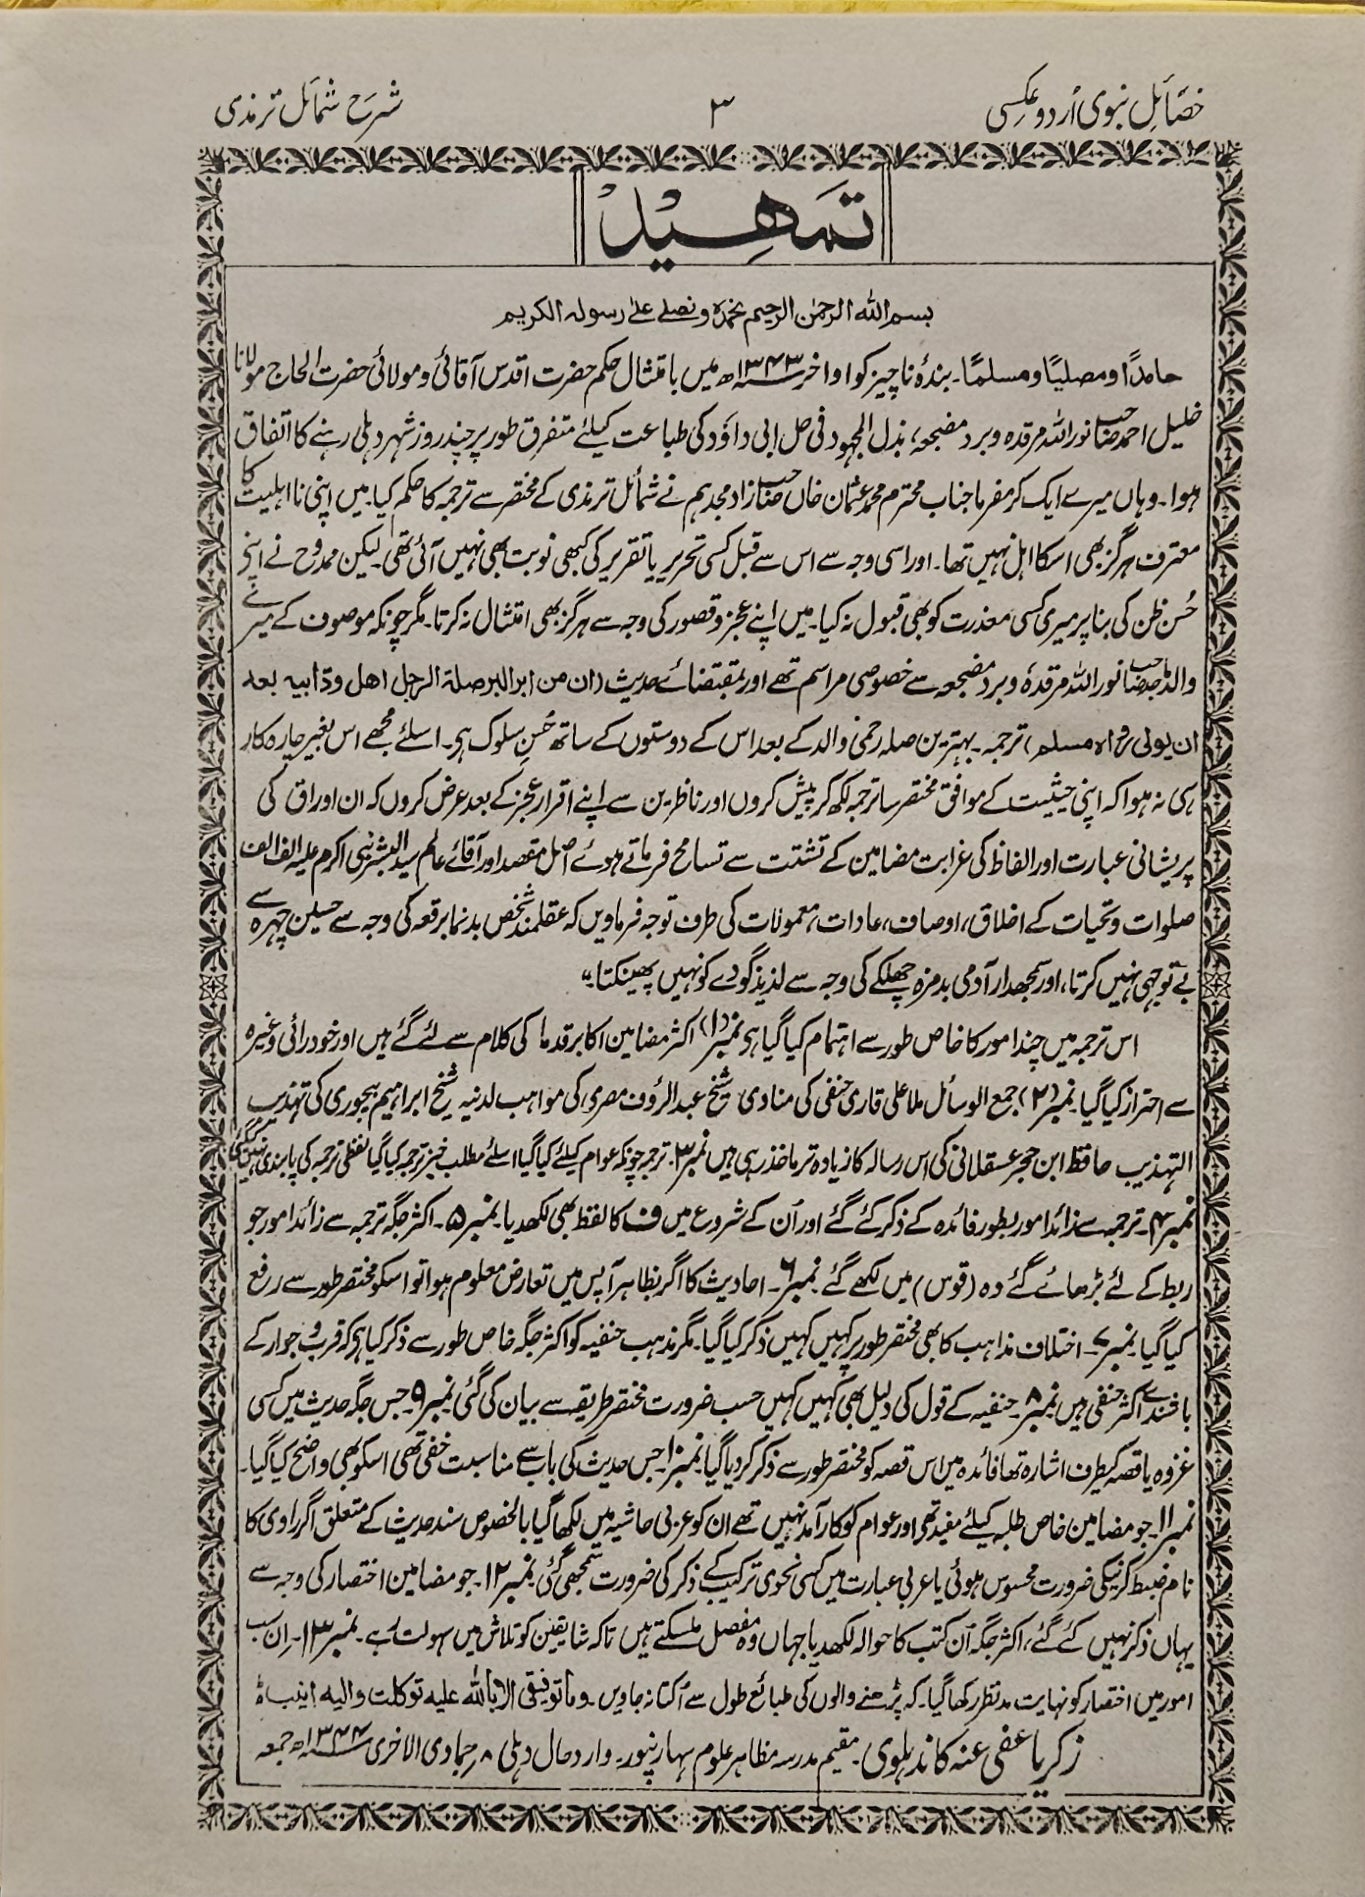 خصَائِل نبوی اُردو عکسِی
۳
شرح شمائل ترمذی
تمھید
بسم اللہ الرحمٰن الرحیم نحمدہ و نصلے علےٰ رسولہ الکریم
حامدًا و مصلیًا و مسلمًا۔ بندۂ ناچیز کو اواخر ۱۳۴۳ھ میں بامتثال حکم حضرت اقدس آقائی و مولائی حضرت الحاج مولانا
خلیل احمد صاحب نور اللہ مرقدہ وبرد مضجعہ، بذل المجہود فی حل ابی داؤد کی طباعت کیلئے متفرق طور پر چند روز شہر دہلی رہنے کا اتفاق
ہوا۔ وہاں میرے ایک کرمفرما جناب محترم محمد عثمان خاں صاحب زاد مجدہم نے شمائل ترمذی کے مختصر سے ترجمہ کا حکم کیا۔ میں اپنی نااہلیت کا
معترف ہرگز بھی اسکا اہل نہیں تھا۔ اور اسی وجہ سے اس سے قبل کسی تحریر یا تقریر کی کبھی نوبت بھی نہیں آئی تھی۔ لیکن ممدوح نے اپنے
حُسن ظن کی بنا پر میری کسی معذرت کو بھی قبول نہ کیا۔ میں اپنے عجز و قصور کی وجہ سے ہرگز بھی امتثال نہ کرتا۔ مگر چونکہ موصوف کے میرے
والد ماجد صاحب نور اللہ مرقدہٗ وبرد مضجعہ سے خصوصی مراسم تھے اور بمقتضائے حدیث (ان من ابر البر صلۃ الرجل اھل ود ابیہ بعد
ان یولی رواہ مسلم) ترجمہ۔ بہترین صلہ رحمی والد کے بعد اس کے دوستوں کے ساتھ حُسنِ سلوک ہی۔ اسلئے مجھے اس بغیر چارہ کار
ہی نہ ہوا کہ اپنی حیثیت کے موافق مختصر سا ترجمہ لکھ کر پیش کروں اور ناظرین سے اپنے اقرار عجز کے بعد عرض کروں کہ ان اوراق کی
پریشانی عبارت اور الفاظ کی غرابت مضامین کے تشتت سے تسامح فرماتے ہوئے اصل مقصد اور آقائے عالم سید البشر نبی اکرم علیہ الف الف
صلوات و تحیات کے اخلاق، اوصاف، عادات، معمولات کی طرف توجہ فرماویں کہ عقلمند شخص بدنما برقعہ کی وجہ سے حسین چہرہ سے
بے توجہی نہیں کرتا، اور سمجھدار آدمی بدمزہ چھلکے کی وجہ سے لذیذ گودے کو نہیں پھینکتا۔
اس ترجمہ میں چند امور کا خاص طور سے اہتمام کیا گیا ہی نمبر (۱) اکثر مضامین اکابر قدما کی کلام سے لئے گئے ہیں اور خودرائی وغیرہ
سے احتراز کیا گیا۔ نمبر (۲) جمع الوسائل ملا علی قاری حنفی کی مناوی شیخ عبد الرؤف مصری کی مواہب لدنیہ شیخ ابراہیم بیجوری کی تہذیب
التہذیب حافظ ابن حجر عسقلانی کی اس رسالہ کا زیادہ تر ماخذ رہی ہیں نمبر ۳۔ ترجمہ چونکہ عوام کیلئے کیا گیا اسلئے مطلب خیز ترجمہ کیا گیا لفظی ترجمہ کی پابندی نہیں کی گئی
نمبر ۴۔ ترجمہ سے زائد امور بطور فائدہ کے ذکر کئے گئے اور اُن کے شروع میں ف کا لفظ بھی لکھدیا۔ نمبر ۵۔ اکثر جگہ ترجمہ سے زائد امور جو
ربط کے لئے بڑھائے گئے وہ (قوس) میں لکھے گئے۔ نمبر ۶۔ احادیث کا اگر بظاہر آپس میں تعارض معلوم ہوا تو اسکو مختصر طور سے رفع
کیا گیا۔ نمبر ۷۔ اختلاف مذاہب کا بھی مختصر طور پر کہیں کہیں ذکر کیا گیا۔ مگر مذہب حنفیہ کو اکثر جگہ خاص طور سے ذکر کیا ہی کہ قرب و جوار کے
باشندے اکثر حنفی ہیں نمبر ۸۔ حنفیہ کے قول کی دلیل بھی کہیں کہیں حسب ضرورت مختصر طریقہ سے بیان کی گئی نمبر ۹۔ جس جگہ حدیث میں کسی
غزوہ یا قصہ کیطرف اشارہ تھا فائدہ میں اس قصہ کو مختصر طور سے ذکر کر دیا گیا نمبر ۱۰۔ جس حدیث کی باب سے مناسبت خفی تھی اسکو بھی واضح کیا گیا۔
نمبر ۱۱۔ جو مضامین خاص طلبہ کیلئے مفید تھی اور عوام کو کارآمد نہیں تھے ان کو عربی حاشیہ میں لکھا گیا بالخصوص سند حدیث کے متعلق اگر راوی کا
نام ضبط کرنیکی ضرورت محسوس ہوئی یا عربی عبارت میں کسی نحوی ترکیب کے ذکر کی ضرورت سمجھی گئی نمبر ۱۲۔ جو مضامین اختصار کی وجہ سے
یہاں ذکر نہیں کئے گئے، اکثر جگہ اُن کتب کا حوالہ لکھدیا جہاں وہ مفصل ملسکتے ہیں تاکہ شایقین کو تلاش میں سہولت رہے۔ نمبر ۱۳۔ اِن سب
امور میں اختصار کو نہایت مدنظر رکھا گیا۔ کہ پڑھنے والوں کی طبائع طول سے اُکتا نہ جاویں۔ وما توفیقی الا باللہ علیہ توکلت والیہ انیب
زکریا عفی عنہ کاندہلوی۔ مقیم مدرسہ مظاہر علوم سہارنپور۔ وارد حال دہلی ۸ جمادی الاخری ۱۳۴۴ھ جمعہ